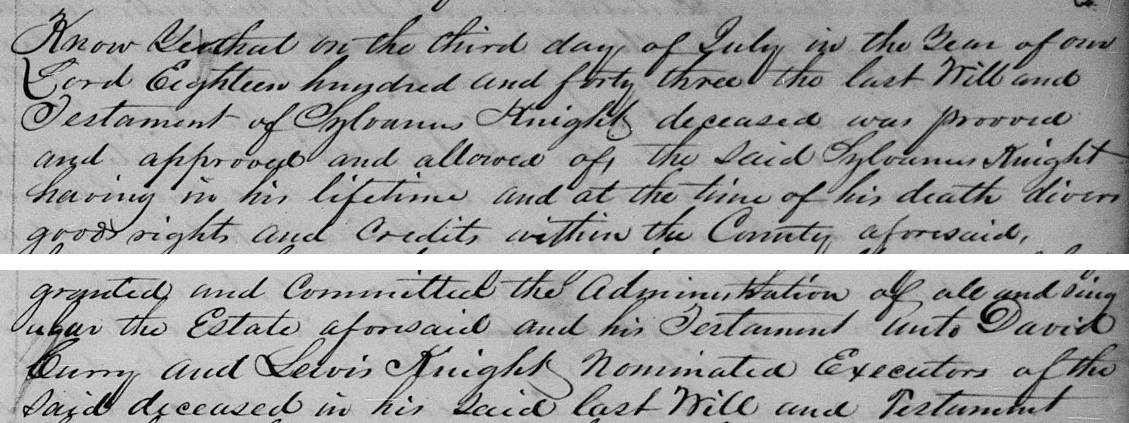 Know Ye that on the third day of July in the Year of our
Lord Eighteen hundred and forty three the last Will and
Testament of Sylvanus Knight deceased was prooved
and approved and allowed of, the said Sylvanus Knight
having in his lifetime and at the time of his death divers
goods rights and Credits within the County aforesaid,
granted and Committed the Administration of all and sing
ular the Estate aforesaid and his Testament unto David
Curry and Lewis Knight Nominated Executors of the
said deceased in his said last Will and Testament